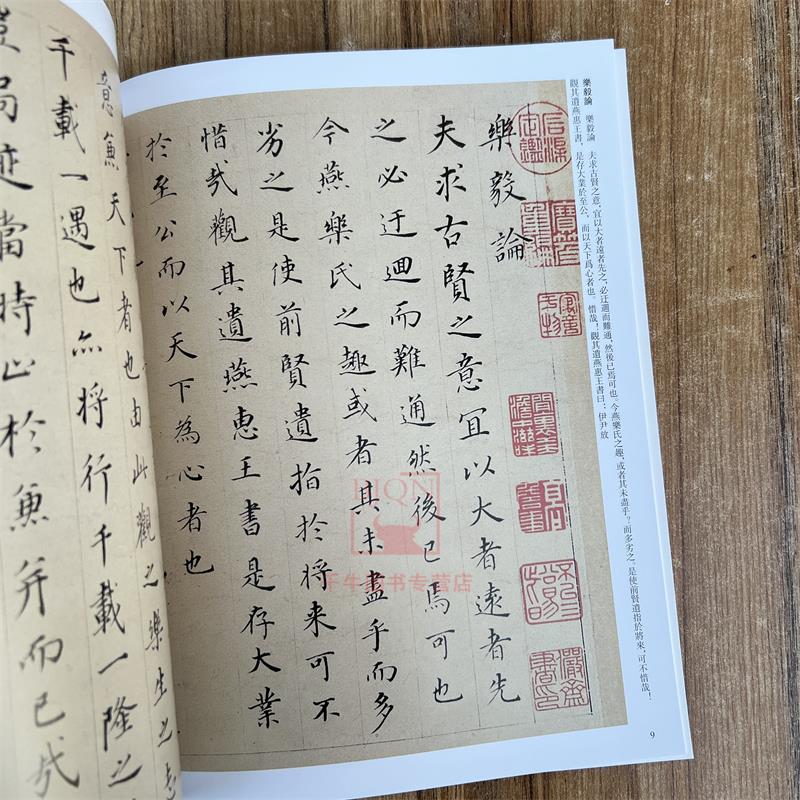 樂毅論 樂毅論 夫求古賢之意,宜以大者遠者先之,必迂迴而難通,然後已焉可也。今燕樂氏之趣,或者其未盡乎?而多劣之。是使前賢遺指於將來,可不惜哉!
觀其遺燕惠王書,是存大業於至公,而以天下爲心者也。惜哉!觀其遺燕惠王書曰:伊尹放
樂毅論
夫求古賢之意宜以大者遠者先
之必迂迴而難通然後已焉可也
今燕樂氏之趣或者其未盡乎而多
劣之是使前賢遺指於将来可不
惜哉觀其遺燕惠王書是存大業
於至公而以天下為心者也
9
意兼天下者也由此觀之樂生之志
千載一遇也亦将行千載一隆之
局迹當時止於兼并而已哉
HQN
专营店